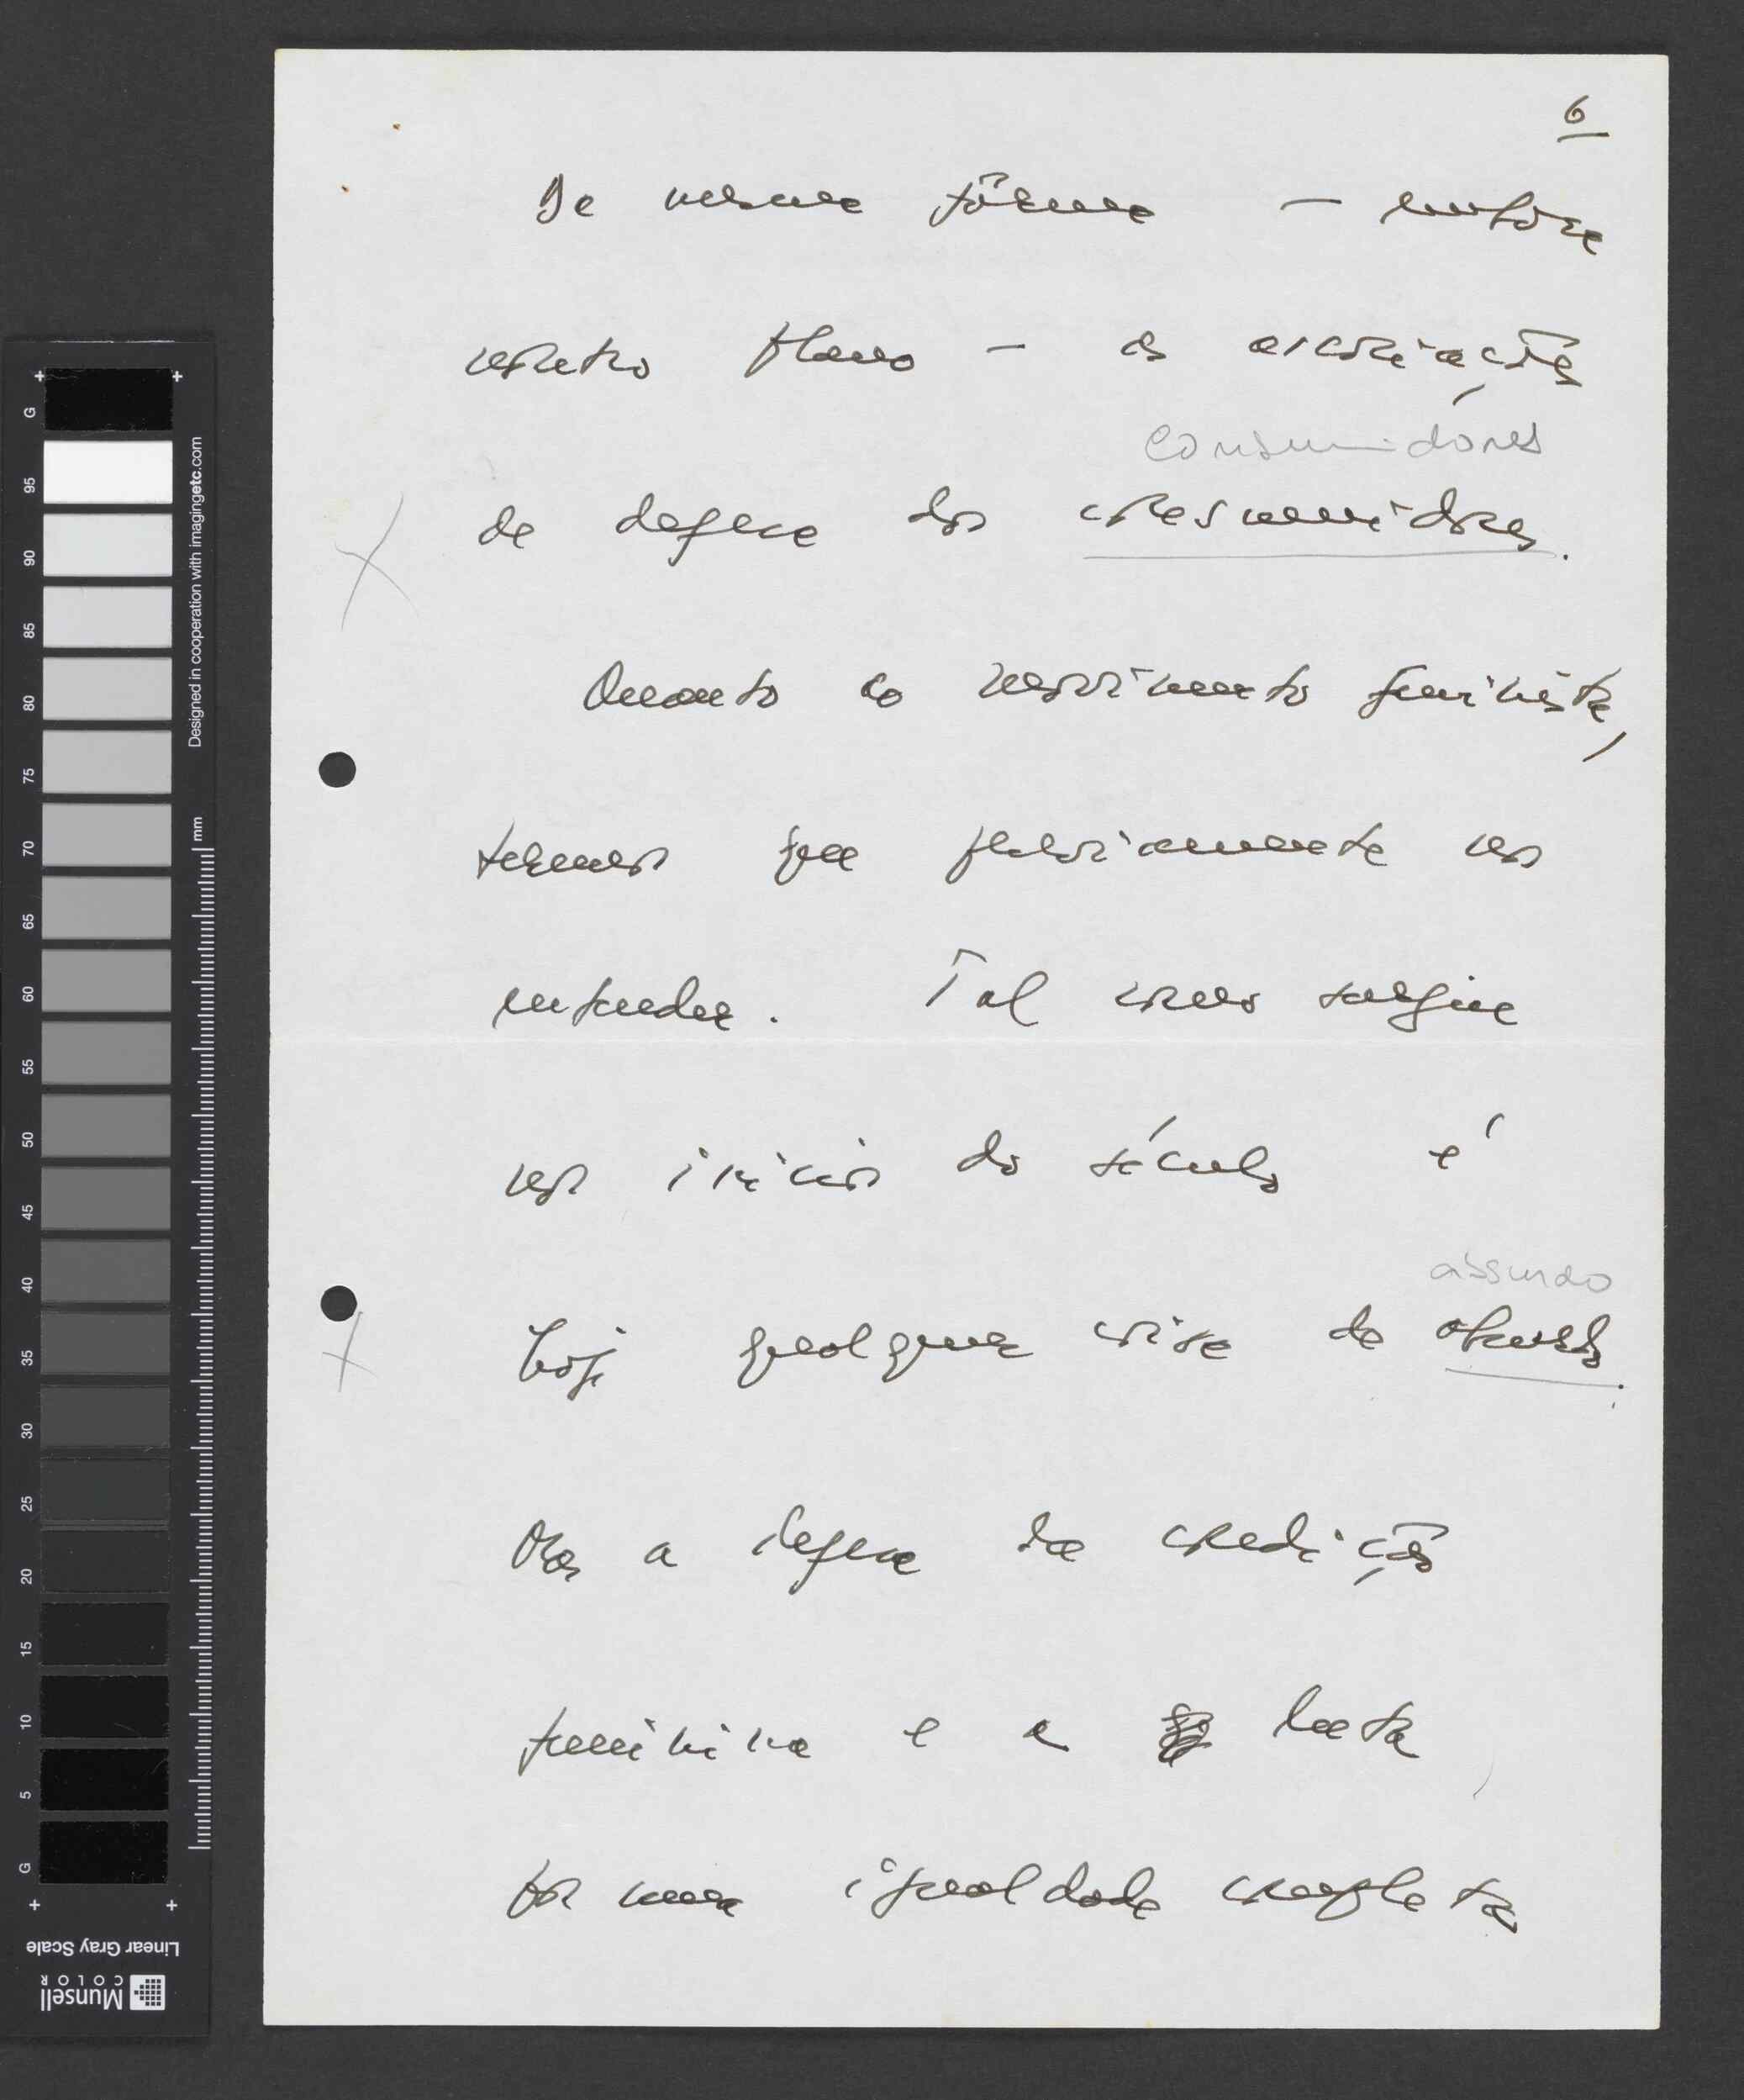 6
Da mesma fórma – embora
noutro plano – as associações
consumidores
de defesa dos consumidores.
Quanto ao movimento feminista,
temos que previamente nos
entender. Tal como surgiu
no início do século é
absurdo
hoje qualquer coisa de absurdo.
Mas a defesa da condição
feminina e a luta
por uma igualdade completa
G
95
90
85
80
75
70
65
60
55
50
45
40
35
30
25
20
15
10
5
G
mm
Designed in cooperation with imagingetc.com
Linear Gray Scale
Munsell
COLOR